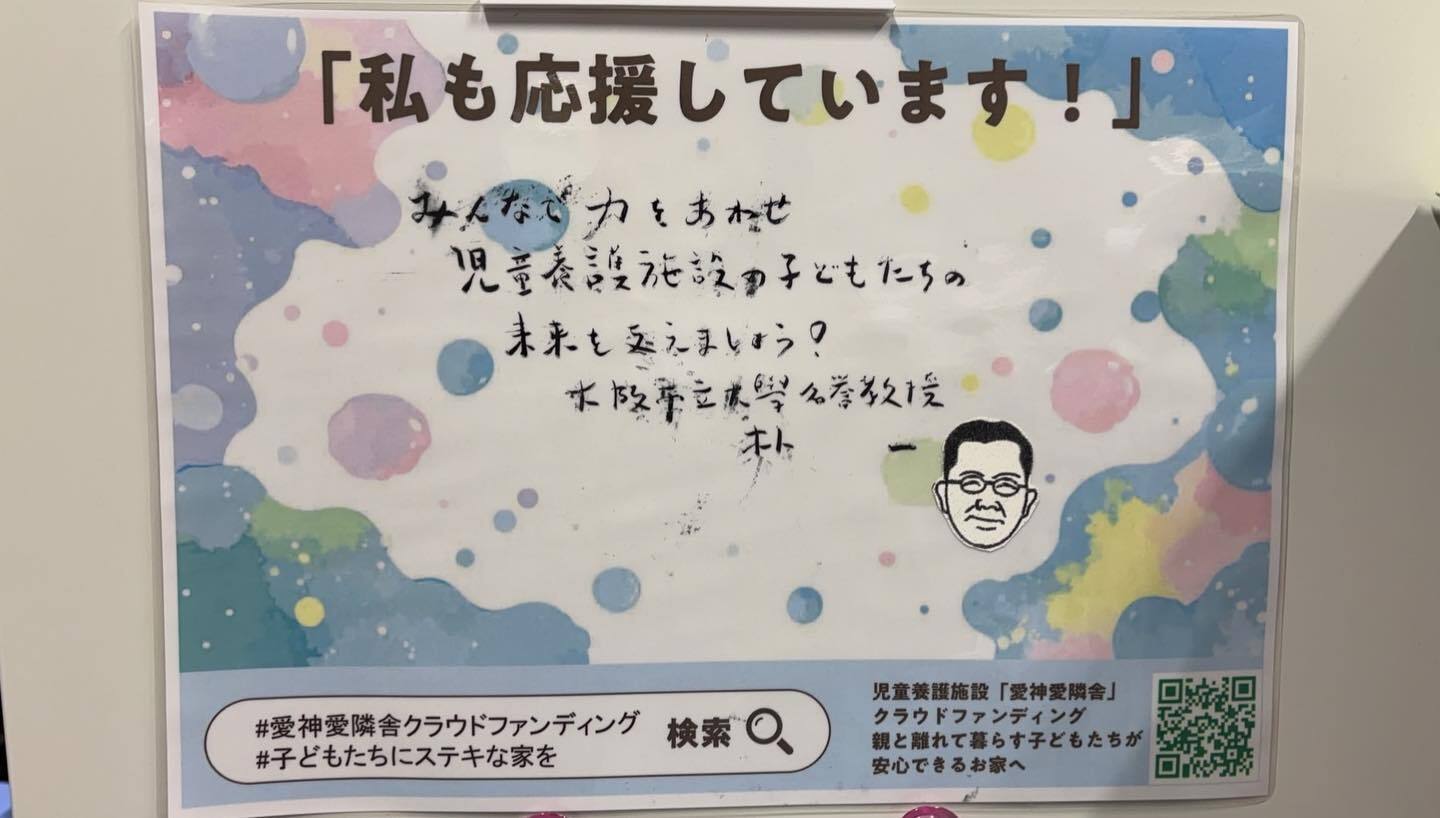 「私も応援しています！」
みんなで力をあわせ
児童養護施設の子どもたちの
未来を支えましょう?
大阪市立大學名誉教授
朴 一
#愛神愛隣舎クラウドファンディング
#子どもたちにステキな家を
検索
児童養護施設「愛神愛隣舎」
クラウドファンディング
親と離れて暮らす子どもたちが
安心できるお家へ